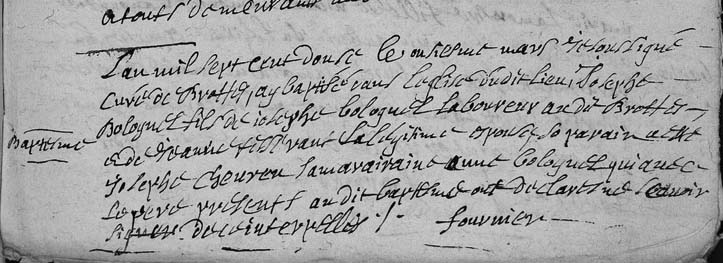 L'an mil sept cent douse le onsiesme mars Je soussigné
Curé de Brottes, ay baptisé dans l'eglise dudit lieu, Josephe
Bologuel fils de josephe bologuel laboureur audit Brottes
Baptesme
et de Jeanne sa legitime epouse, so parain a esté
Josephe la maraine anne bologuel qui avec
le pere presents audit baptesme ont declaré ne scavoir
signer de ce interpellés /. fournier